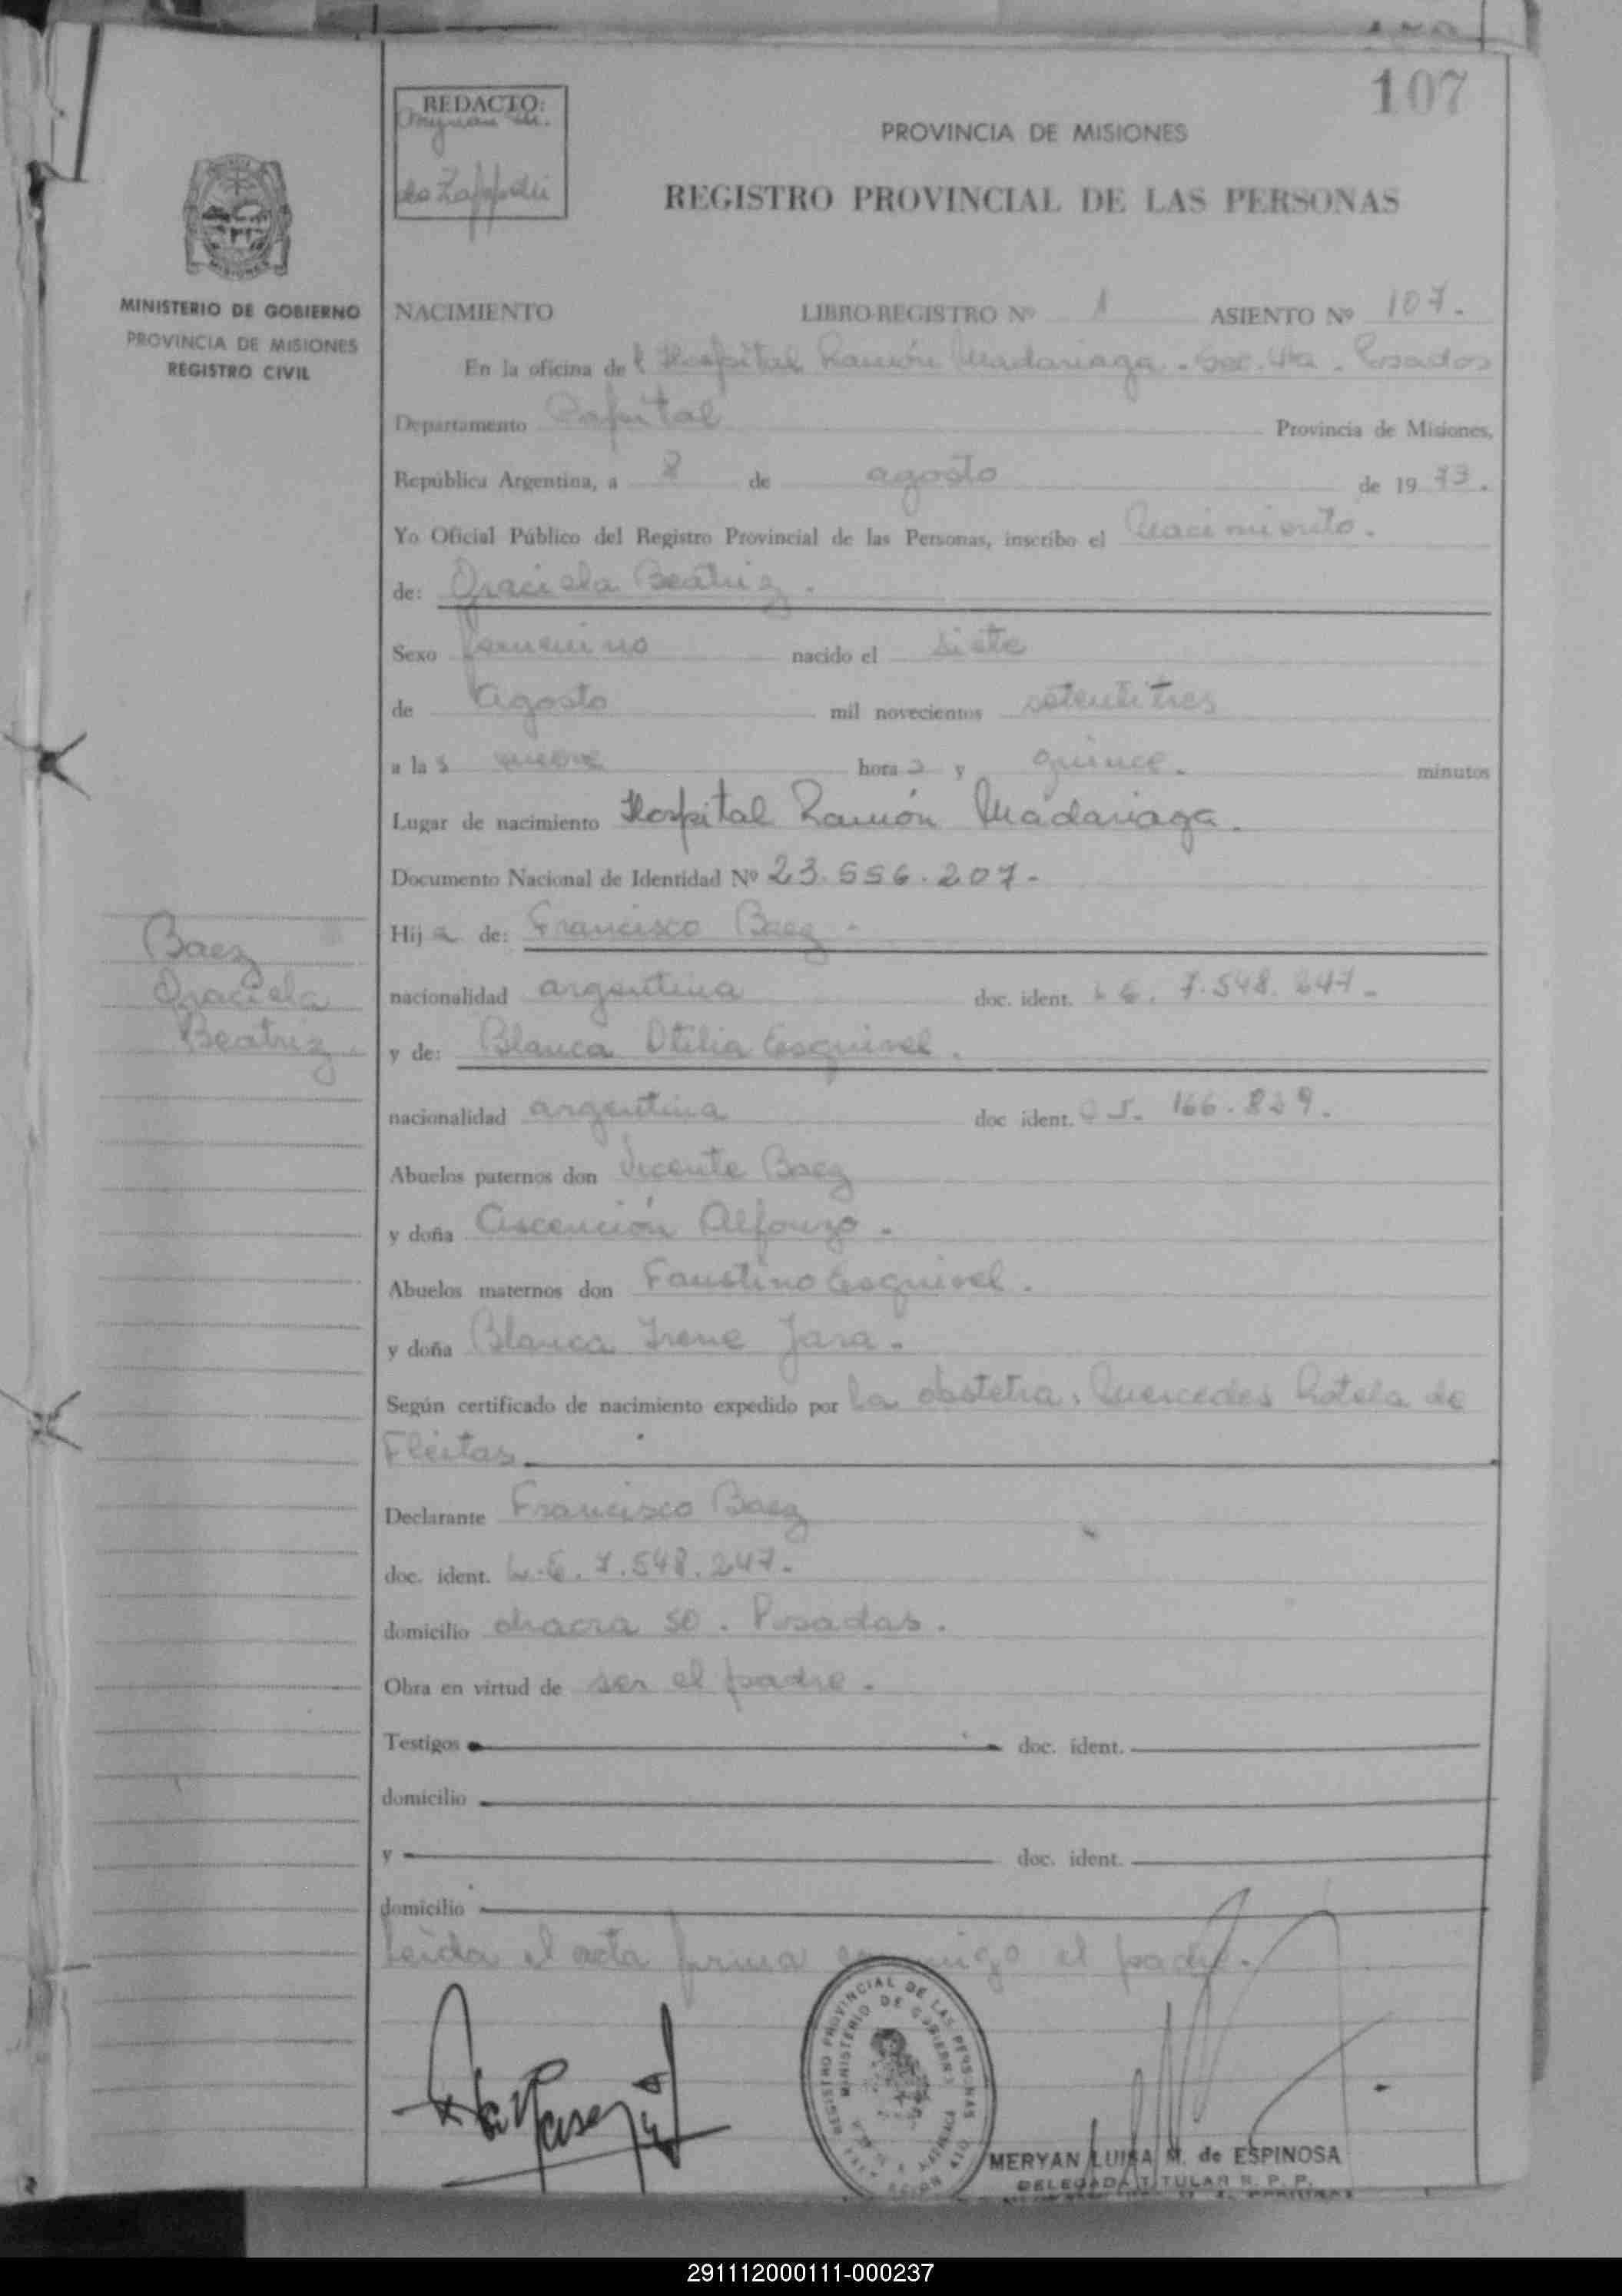 107
REDACTO:
PROVINCIA DE MISIONES
REGISTRO PROVINCIAL DE LAS PERSONAS
MINISTERIO DE GOBIERNO
PROVINCIA DE MISIONES
REGISTRO CIVIL
NACIMIENTO LIBRO-REGISTRO Nº 1 ASIENTO Nº 107.
En la oficina del Hospital Ramón Madariaga - Sec. 4ta. Posadas
Departamento Capital Provincia de Misiones,
República Argentina, a 8 de agosto de 1973.
Yo Oficial Público del Registro Provincial de las Personas, inscribo el Nacimiento.
de: Graciela Beatriz.
Sexo femenino nacido el siete
de agosto mil novecientos setentitres
a las nueve horas y quince. minutos
Lugar de nacimiento Hospital Ramón Madariaga.
Documento Nacional de Identidad Nº 23.556.207.-
Hija de: Francisco Baez -
nacionalidad argentina doc. ident. L.E. 7.548.247-
y de: Blanca Otilia Esquivel.
nacionalidad argentina doc ident. 166.829.
Abuelos paternos don Vicente Baez
y doña Ascención Alfonzo.
Abuelos maternos don Faustino Esquivel.
y doña Blanca Irene Jara.
Según certificado de nacimiento expedido por la obstetra, Mercedes Rotela de
Fleitas
Declarante Francisco Baez
doc. ident. L.E. 7.548.247.-
domicilio chacra 50. Posadas.
Obra en virtud de ser el padre.
Testigos doc. ident.
domicilio
y doc. ident.
domicilio
Leída el acta firma conmigo el padre.
Baez
Graciela
Beatriz.
REGISTRO PROVINCIAL DE LAS PERSONAS
MINISTERIO DE GOBIERNO
MERYAN LUISA M. de ESPINOSA
DELEGADA TITULAR R. P. P.
291112000111-000237